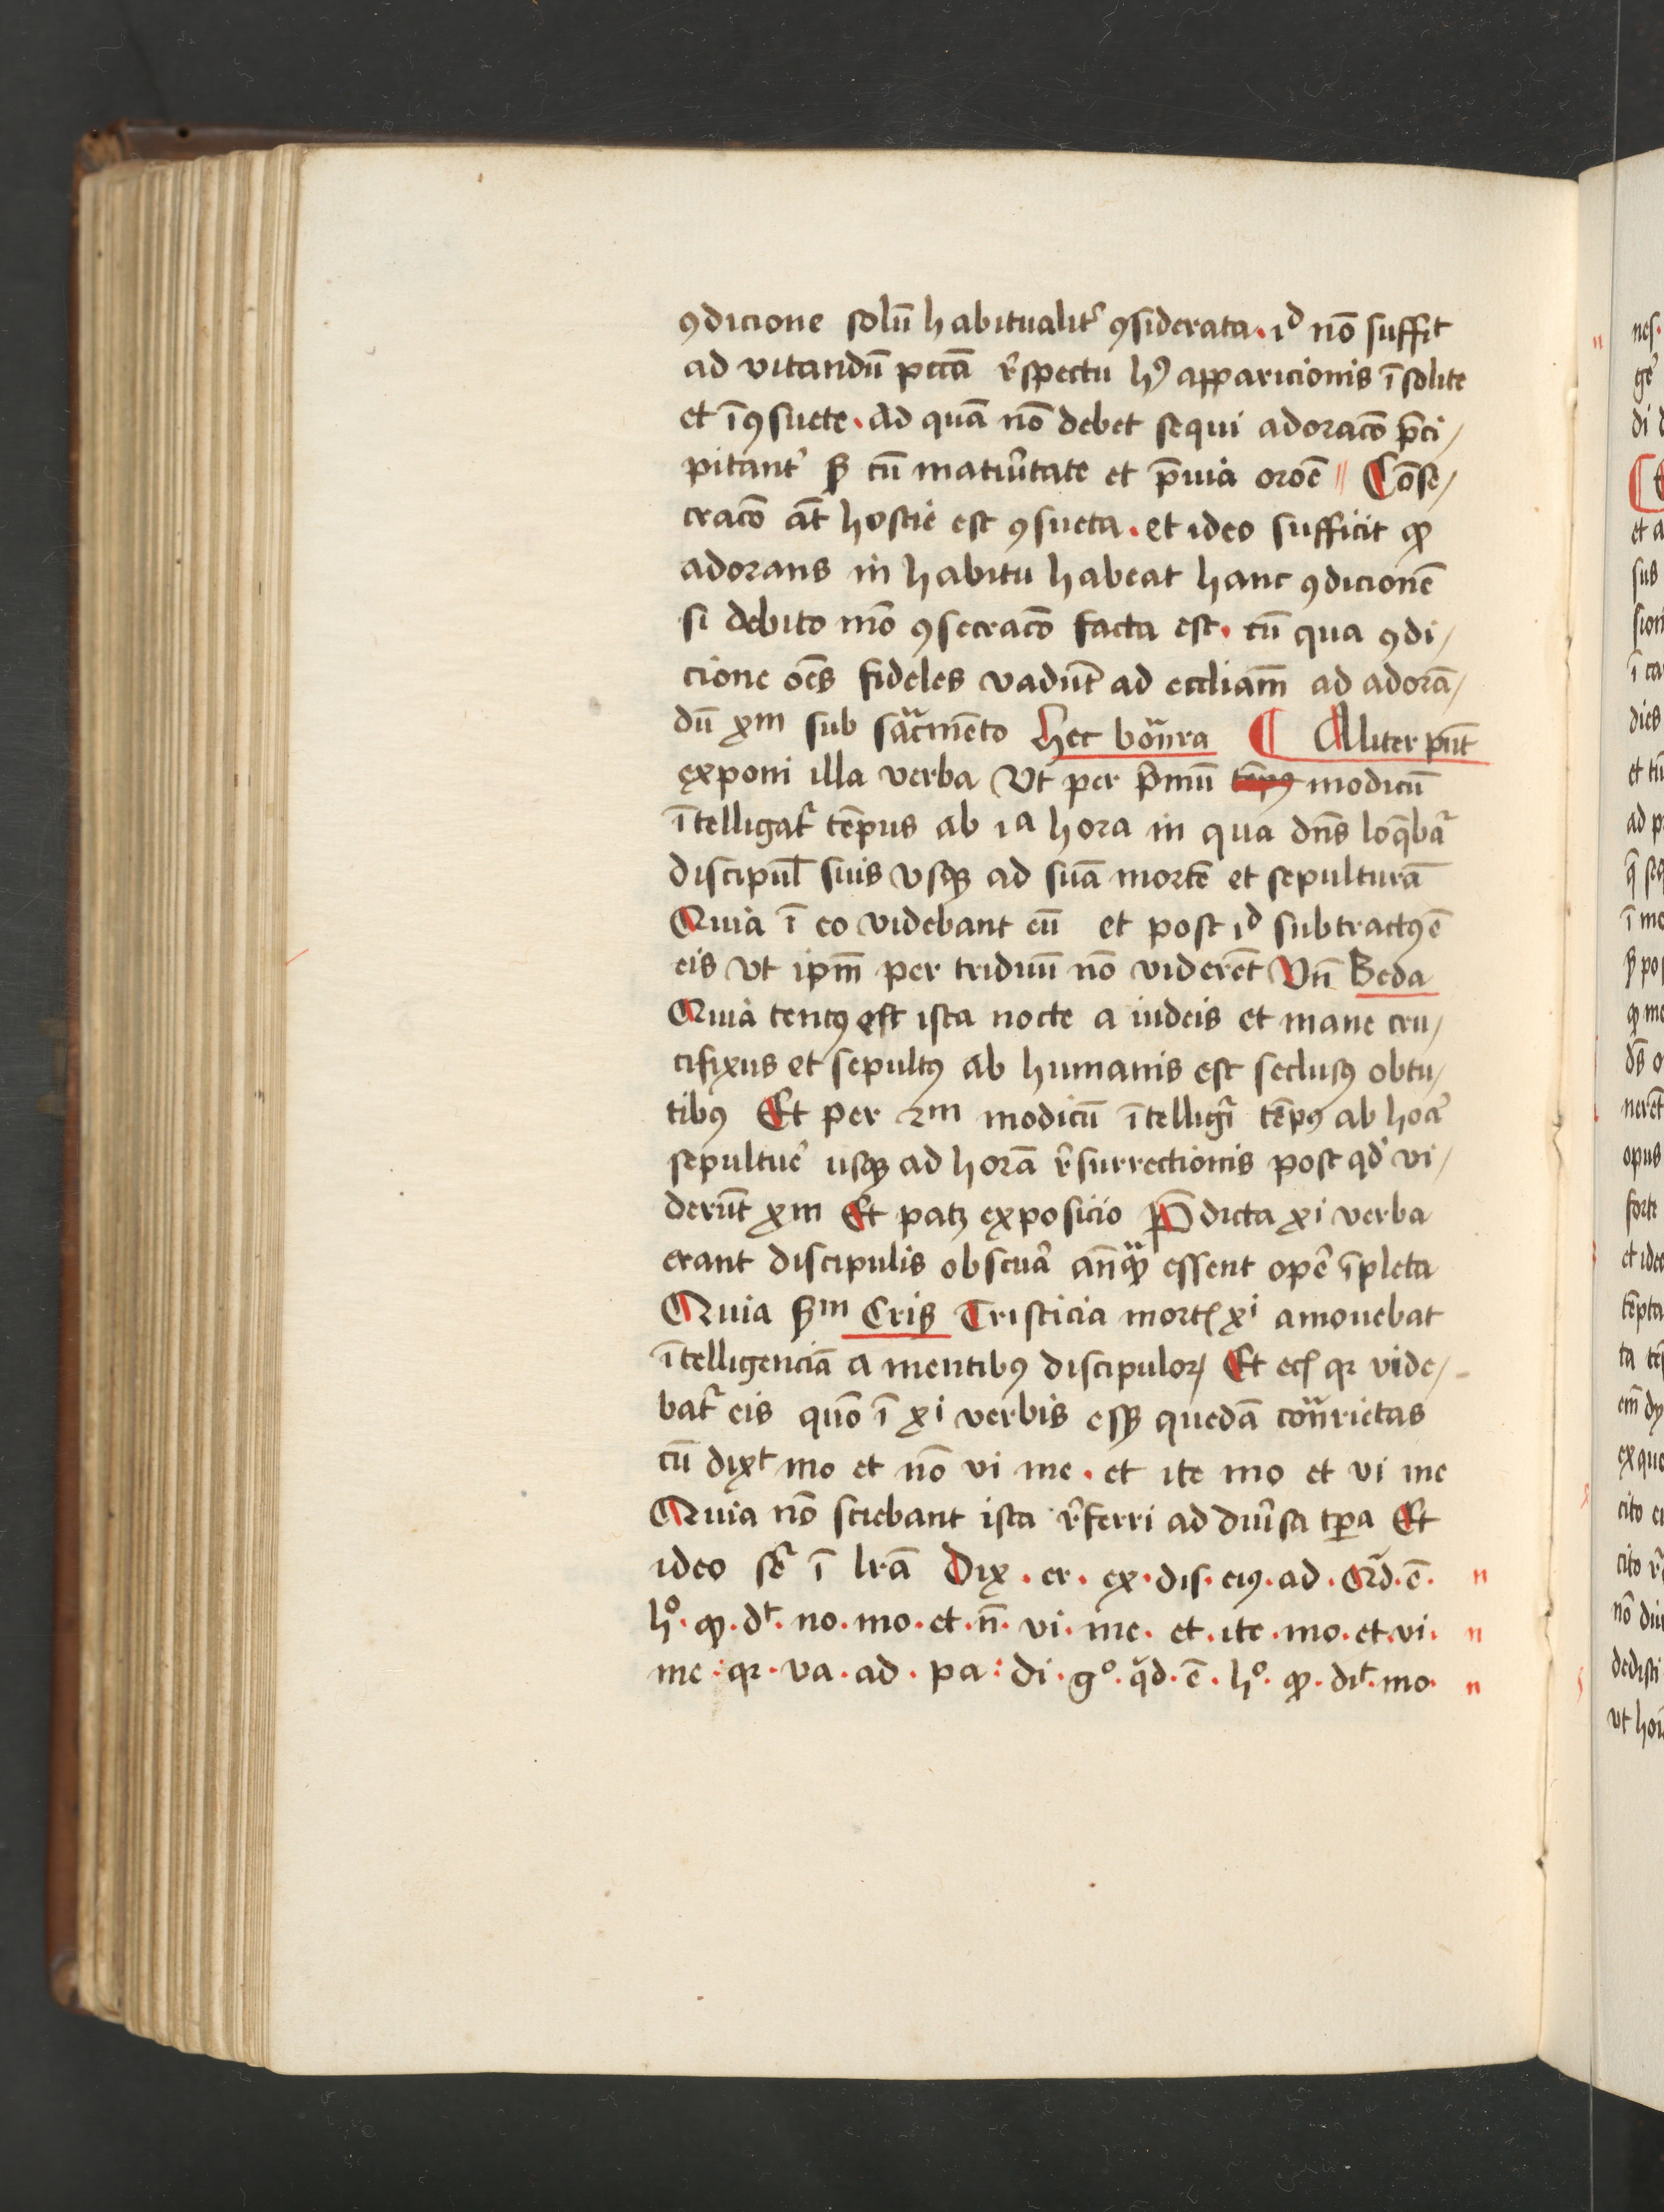 ꝯdicione solū habitualit᷑ ꝯsiderata. iᵈ nō suffit
ad vitandū pctā r᷑spectu hꝰ apparicionis ī solite
et ī ꝯsuete. Ad quā nō debet sequi adoracō p̄ci/
pitant᷑ sꝫ cū matur᷑itate et p̄uia oroē // Cōse/
cracō āt hostie est ꝯsueta. et ideo sufficit ꝙ
adorans in habitu habeat hanc ꝯdicionē
si debito mō ꝯsecracō facta est. cū qua ꝯdi/
cione oēs fideles vadūt ad eccliam̄ ad adorā/
dū xp̄m sub sacͣmēto Hec boͣuēra ¶ Aliter pn̄t
exponi illa verba Vt per p͛mū tēpꝰ modicū
ītelligat᷑ tēpus ab iᵃ hora in qua dn̄s loq̄bat᷑
discipul̄ suis vsqꝫ ad suā mortē et sepulturā
Quia ī eo videbant eū et post iᵈ subtractꝰ ē
eis vt ipm̄ per triduū nō viderēt Vn̄ Beda
Quia tentꝰ est ista nocte a iudeis et mane cru/
cifixus et sepultꝰ ab humanis est seclusꝰ obtu/
tibꝰ Et per 2ᵐ modicū ītelligi᷑ tēpꝰ ab hor᷑
sepultur᷑ usqꝫ ad horā r᷑surrectionis post qd᷑ vi/
derūt xp̄m Et patꝫ exposicio P̄dicta xi verba
erant discipulis obscura᷑ an̄qͣꝫ essent oper᷑ īpleta
Quia sꝫᵐ Crisꝫ Tristicia mortꝭ xⁱ amouebat
ītelligenciā a mentibꝰ discipuloꝝ Et ecꝭ qꝛ vide/
bat᷑ eis quō ī xⁱ verbis essꝫ quedā coͣrrietas
cū dixᵗ mo et nō vi me. et ite mo et vi me
Quia nō sciebant ista r᷑ferri ad diu᷑sa tꝑa Et
ideo se᷑ ī lrā Dix. er. ex. dis. eiꝰ. ad. Qͥd. ē.
hͦ. ꝙ. dᵗ. no. mo. et. n̄. vi. me. et. ite. mo. et. vi.
me. qꝛ. va. ad. pa: di. gͦ. qͥd. ē. hͦ. ꝙ. diᵗ. mo.